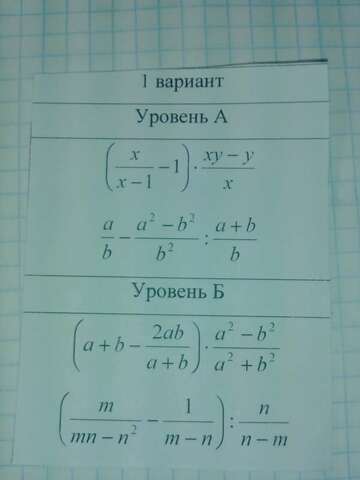 1 вариант
Уровень А
(x/(x−1) − 1) · (xy − y)/x
a/b − (a² − b²)/b² : (a + b)/b
Уровень Б
(a + b − 2ab/(a + b)) · (a² − b²)/(a² + b²)
(m/(mn − n²) − 1/(m − n)) : n/(n − m)